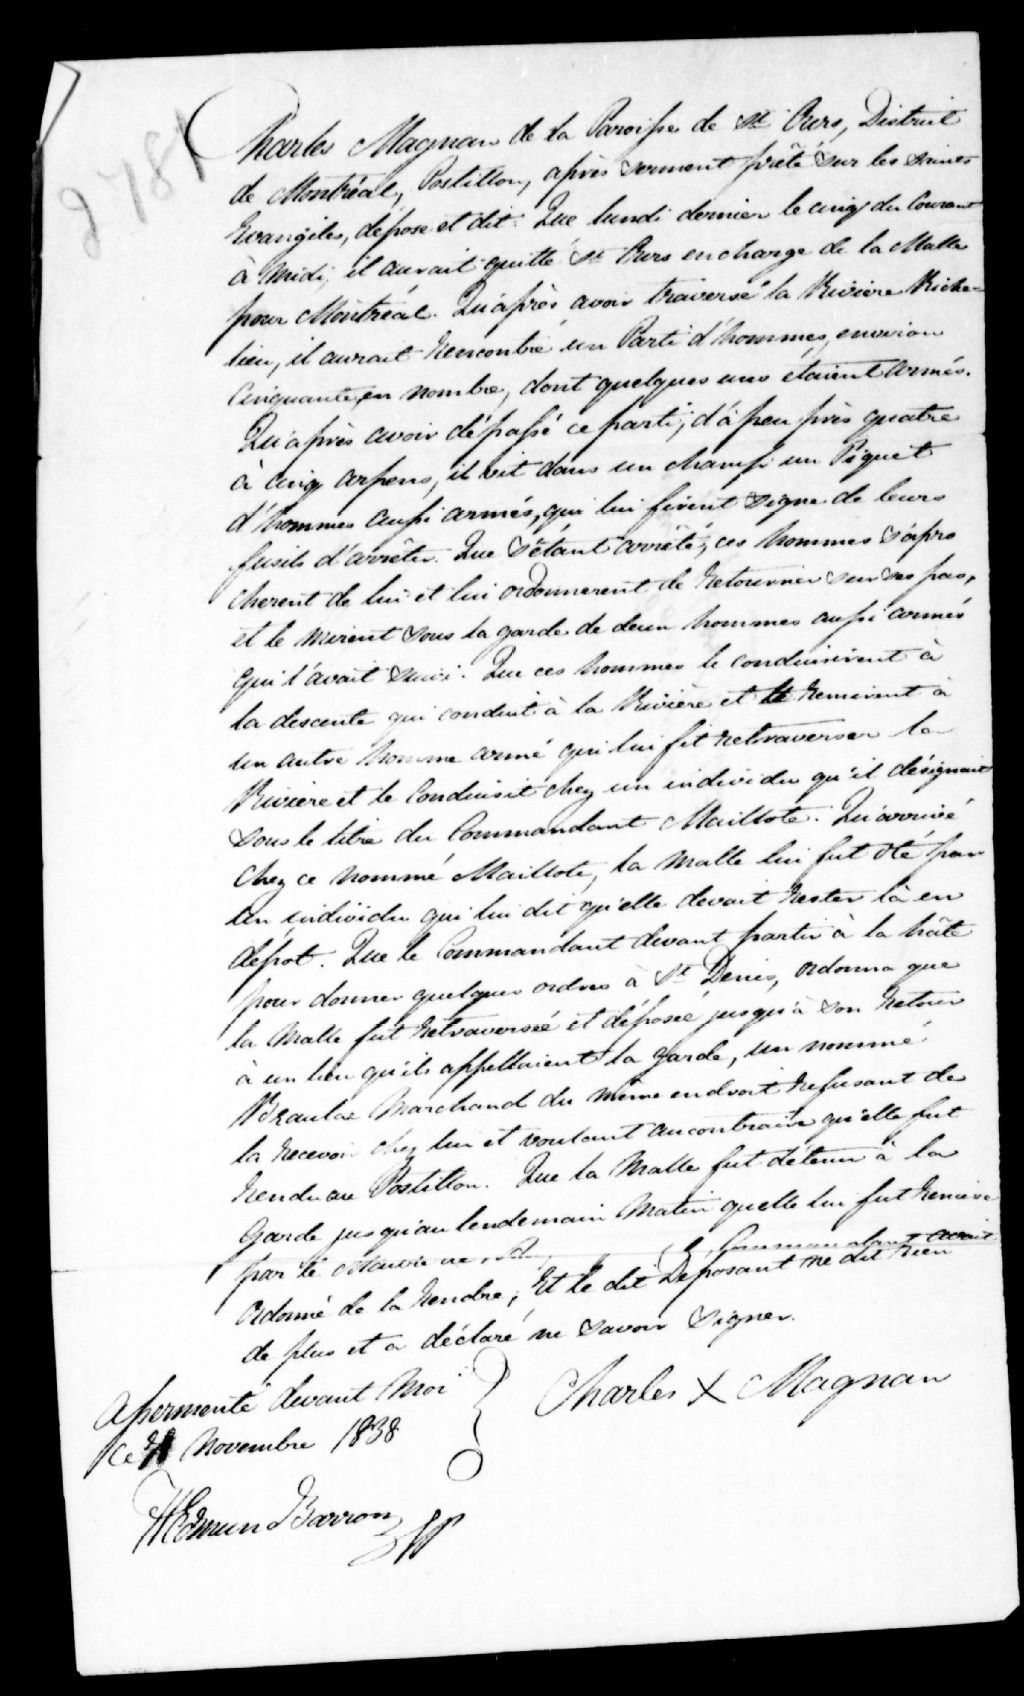 2781
Charles Magnan de la Paroisse de St Ours, District
de Montréal, Postillon, après serment prêté sur les saints
Evangiles, dépose et dit. Que lundi dernier le cinq du Courant
à Midi, il aurait quitté St Ours en charge de la Malle
pour Montréal. Qu'après avoir traversé la Rivière Riche-
lieu, il aurait Rencontré un Parti d'hommes, environ
Cinquante, en nombre, dont quelques uns étaient armés.
Qu'après avoir dépassé ce parti, d'à peu près quatre
à cinq arpens, il vit dans un champ un Piquet
d'hommes aussi armés, qui lui firent signe de leurs
fusils d'arrêter. Que S'étant arrêté, ces hommes S'apro
cherent de lui et lui ordonnerent de Retourner sur ses pas,
et le mirent sous la garde de deux hommes aussi armés
qui l'avait suivi. Que ces hommes le conduisirent à
la descente qui conduit à la Rivière et le Remirent à
un autre homme armé qui lui fit Retraverser la
Rivière et le Conduisit chez un individu qu'il désignait
sous le titre du Commandant Maillote. Qu'arrivé
Chez ce nommé Maillote, la Malle lui fut oté par
un individu qui lui dit qu'elle devait Rester là en
dépot. Que le Commandant devant partir à la hâte
pour donner quelques ordres à St Denis, ordonna que
la Malle fut Retraversée et déposée jusqu'à son Retour
à un lieu qu'ils appelloient la garde, un nommé
Marchand du même endroit Refusant de
la Recevoir chez lui et voulant au contraire qu'elle fut
Rendu au Postillon. Que la Malle fut détenu à la
Garde jusqu'au lendemain Matin quelle lui fut Remise
par le Commandant avait
Ordonné de la Rendre, Et le dit Deposant ne dit Rien
de plus et a déclaré ne savoir signer.
Assermenté devant Moi
Charles X Magnan
Ce Novembre 1838
Edmund Barron
JP